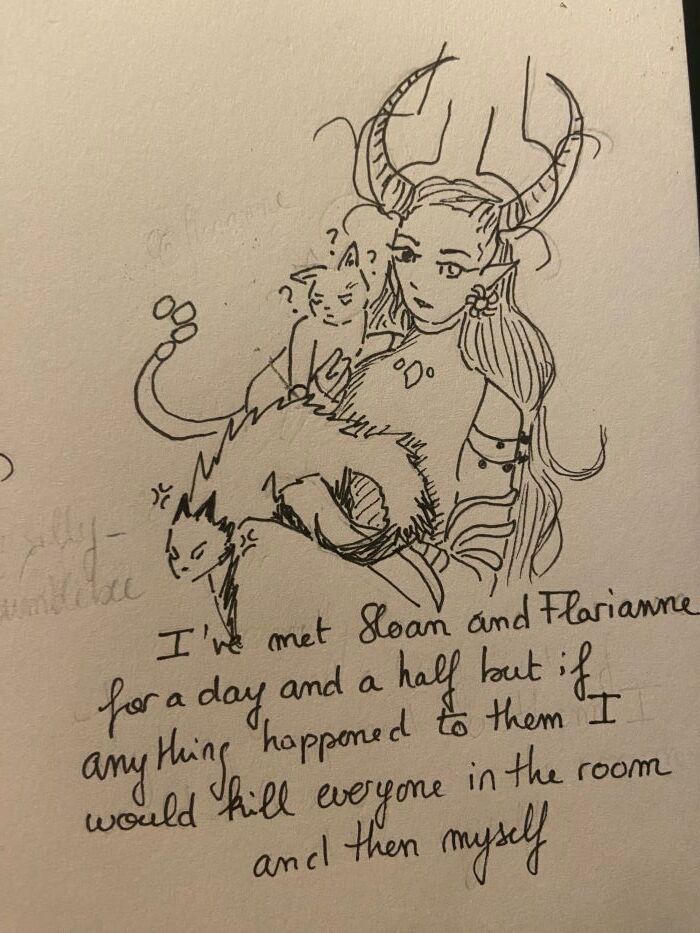 ? ? ?
I've met Sloan and Flarianne
for a day and a half but if
anything happened to them I
would kill everyone in the room
and then myself